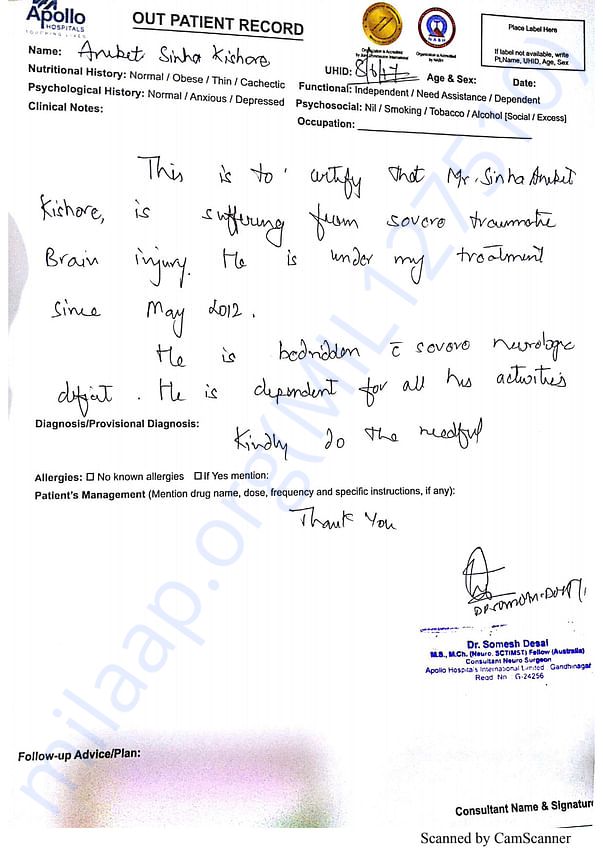 Apollo
HOSPITALS
TOUCHING LIVES
OUT PATIENT RECORD
Place Label Here
If label not available, write
Pt.Name, UHID, Age, Sex
Name: Aniket Sinha Kishore
UHID: 8/6/17 Age & Sex: Date:
Nutritional History: Normal / Obese / Thin / Cachectic
Functional: Independent / Need Assistance / Dependent
Psychological History: Normal / Anxious / Depressed
Psychosocial: Nil / Smoking / Tobacco / Alcohol [Social / Excess]
Clinical Notes:
Occupation:
This is to certify that Mr. Sinha Aniket
Kishore, is suffering from severe traumatic
Brain injury. He is under my treatment
since May 2012.
He is bedridden c̄ severe neurologic
deficit. He is dependent for all his activities
Diagnosis/Provisional Diagnosis:
Kindly do the needful
Allergies: ☐ No known allergies ☐ If Yes mention:
Patient's Management (Mention drug name, dose, frequency and specific instructions, if any):
Thank You
Dr. Somesh Desai
M.S., M.Ch. (Neuro. SCTIMST) Fellow (Australia)
Consultant Neuro Surgeon
Apollo Hospitals International Limited Gandhinagar
Regd No G-24256
Follow-up Advice/Plan:
Consultant Name & Signature
Scanned by CamScanner
milaap.org(MIL127510)